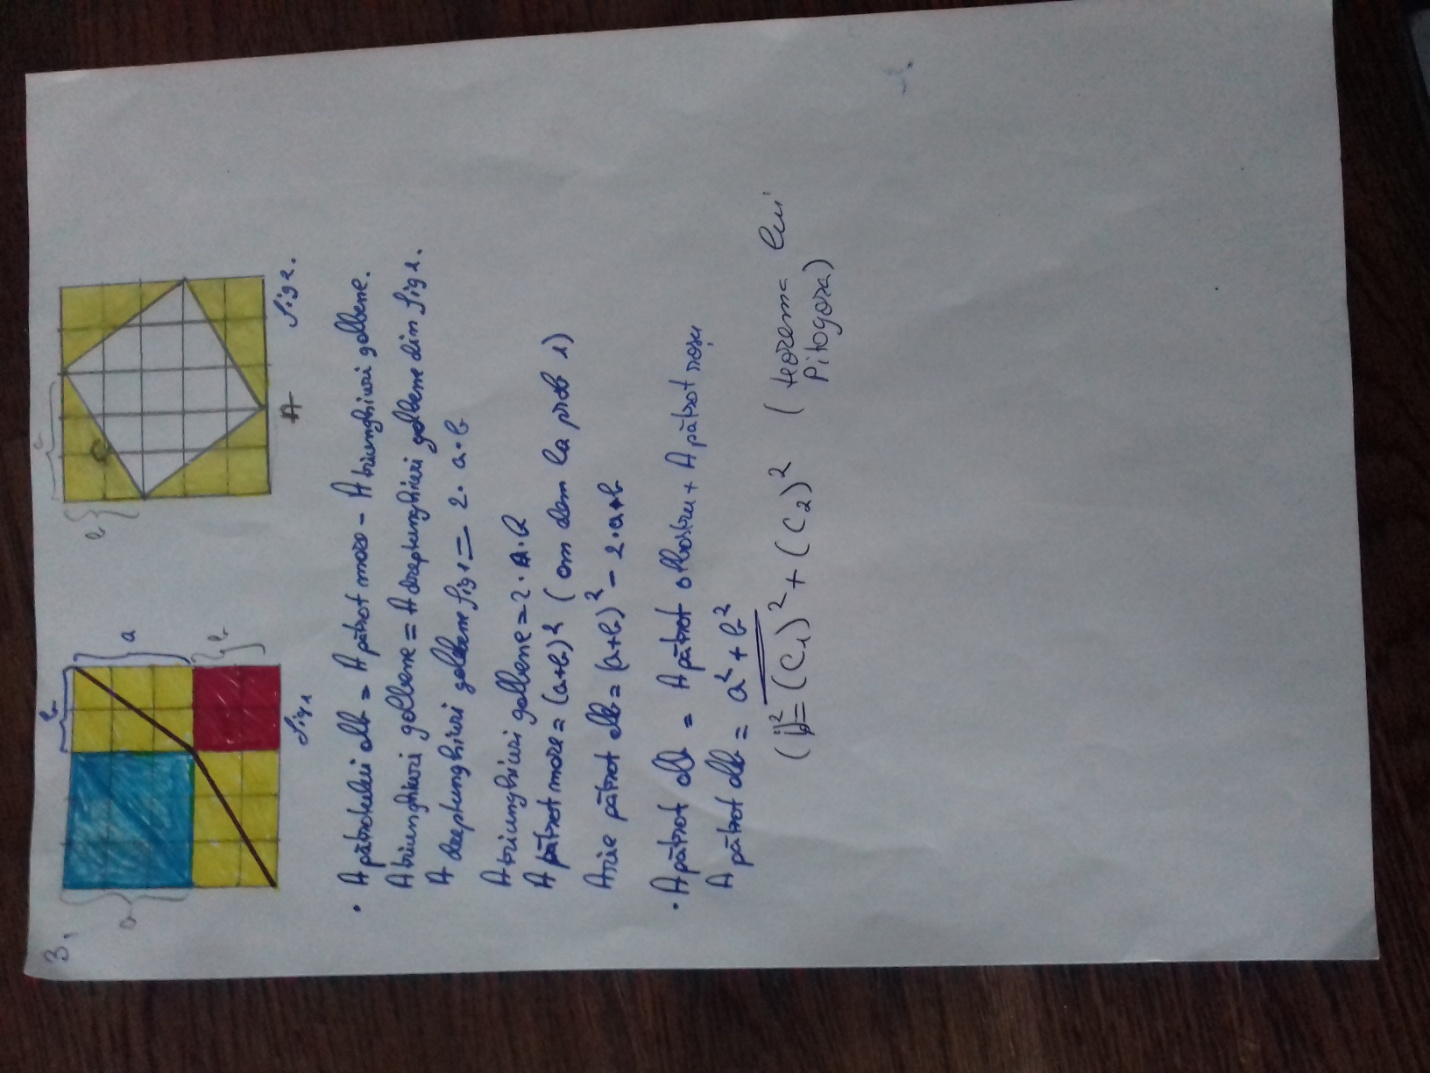 3.
a
b
a
b
fig 1
a
b
A
fig 2.
• A pătratului alb = A pătrat mare - A triunghiuri galbene.
A triunghiuri galbene = A dreptunghiuri galbene din fig 1.
A dreptunghiuri galbene fig 1 = 2 · a · b
A triunghiuri galbene = 2 · a · b
A pătrat mare = (a+b)² (am dem la prob 1)
Arie pătrat alb = (a+b)² - 2 · a · b
• A pătrat alb = A pătrat albastru + A pătrat roșu
A pătrat alb = a² + b²
(ip)² = (C₁)² + (C₂)² ( teorema lui
Pitagora)